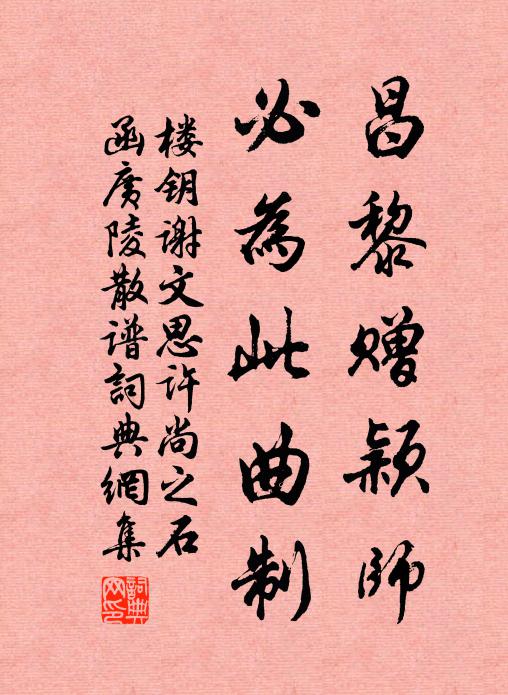 昌黎赠颖师
必為此曲制
楼钥谢文思许尚之石
函廣陵散谱詞典網集
詞典